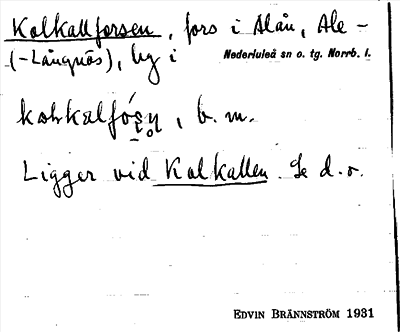 Kolkallforsen, fors i Alån, Ale-
(-Långnäs), by i Nederluleå sn o. tg. Norrb. l.
kɑlkalfósn̥, b. m.
Ligger vid Kolkallen. Se d. o.
EDVIN BRÄNNSTRÖM 1931